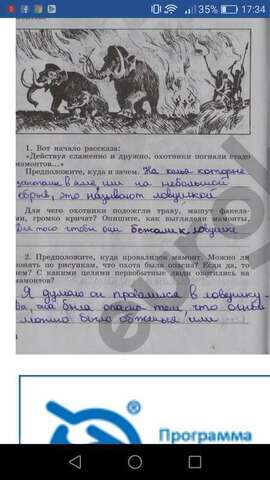 35% 17:34
1. Вот начало рассказа:
«Действуя слаженно и дружно, охотники погнали стадо
мамонтов...»
Предположите, куда и зачем. На колья которые
или на небольшой
это называют ловушкой
Для чего охотники подожгли траву, машут факела-
ми, громко кричат? Опишите, как выглядели мамонты.
Для того чтобы они бежали к ловушке
2. Предположите, куда провалился мамонт. Можно ли
по рисункам, что охота была опасна? Если да, то
чем? С какими целями первобытные люди охотились на
мамонтов?
Я думаю он провалился в ловушку.
Да, она была опасна тем, что
можно было или
Программа